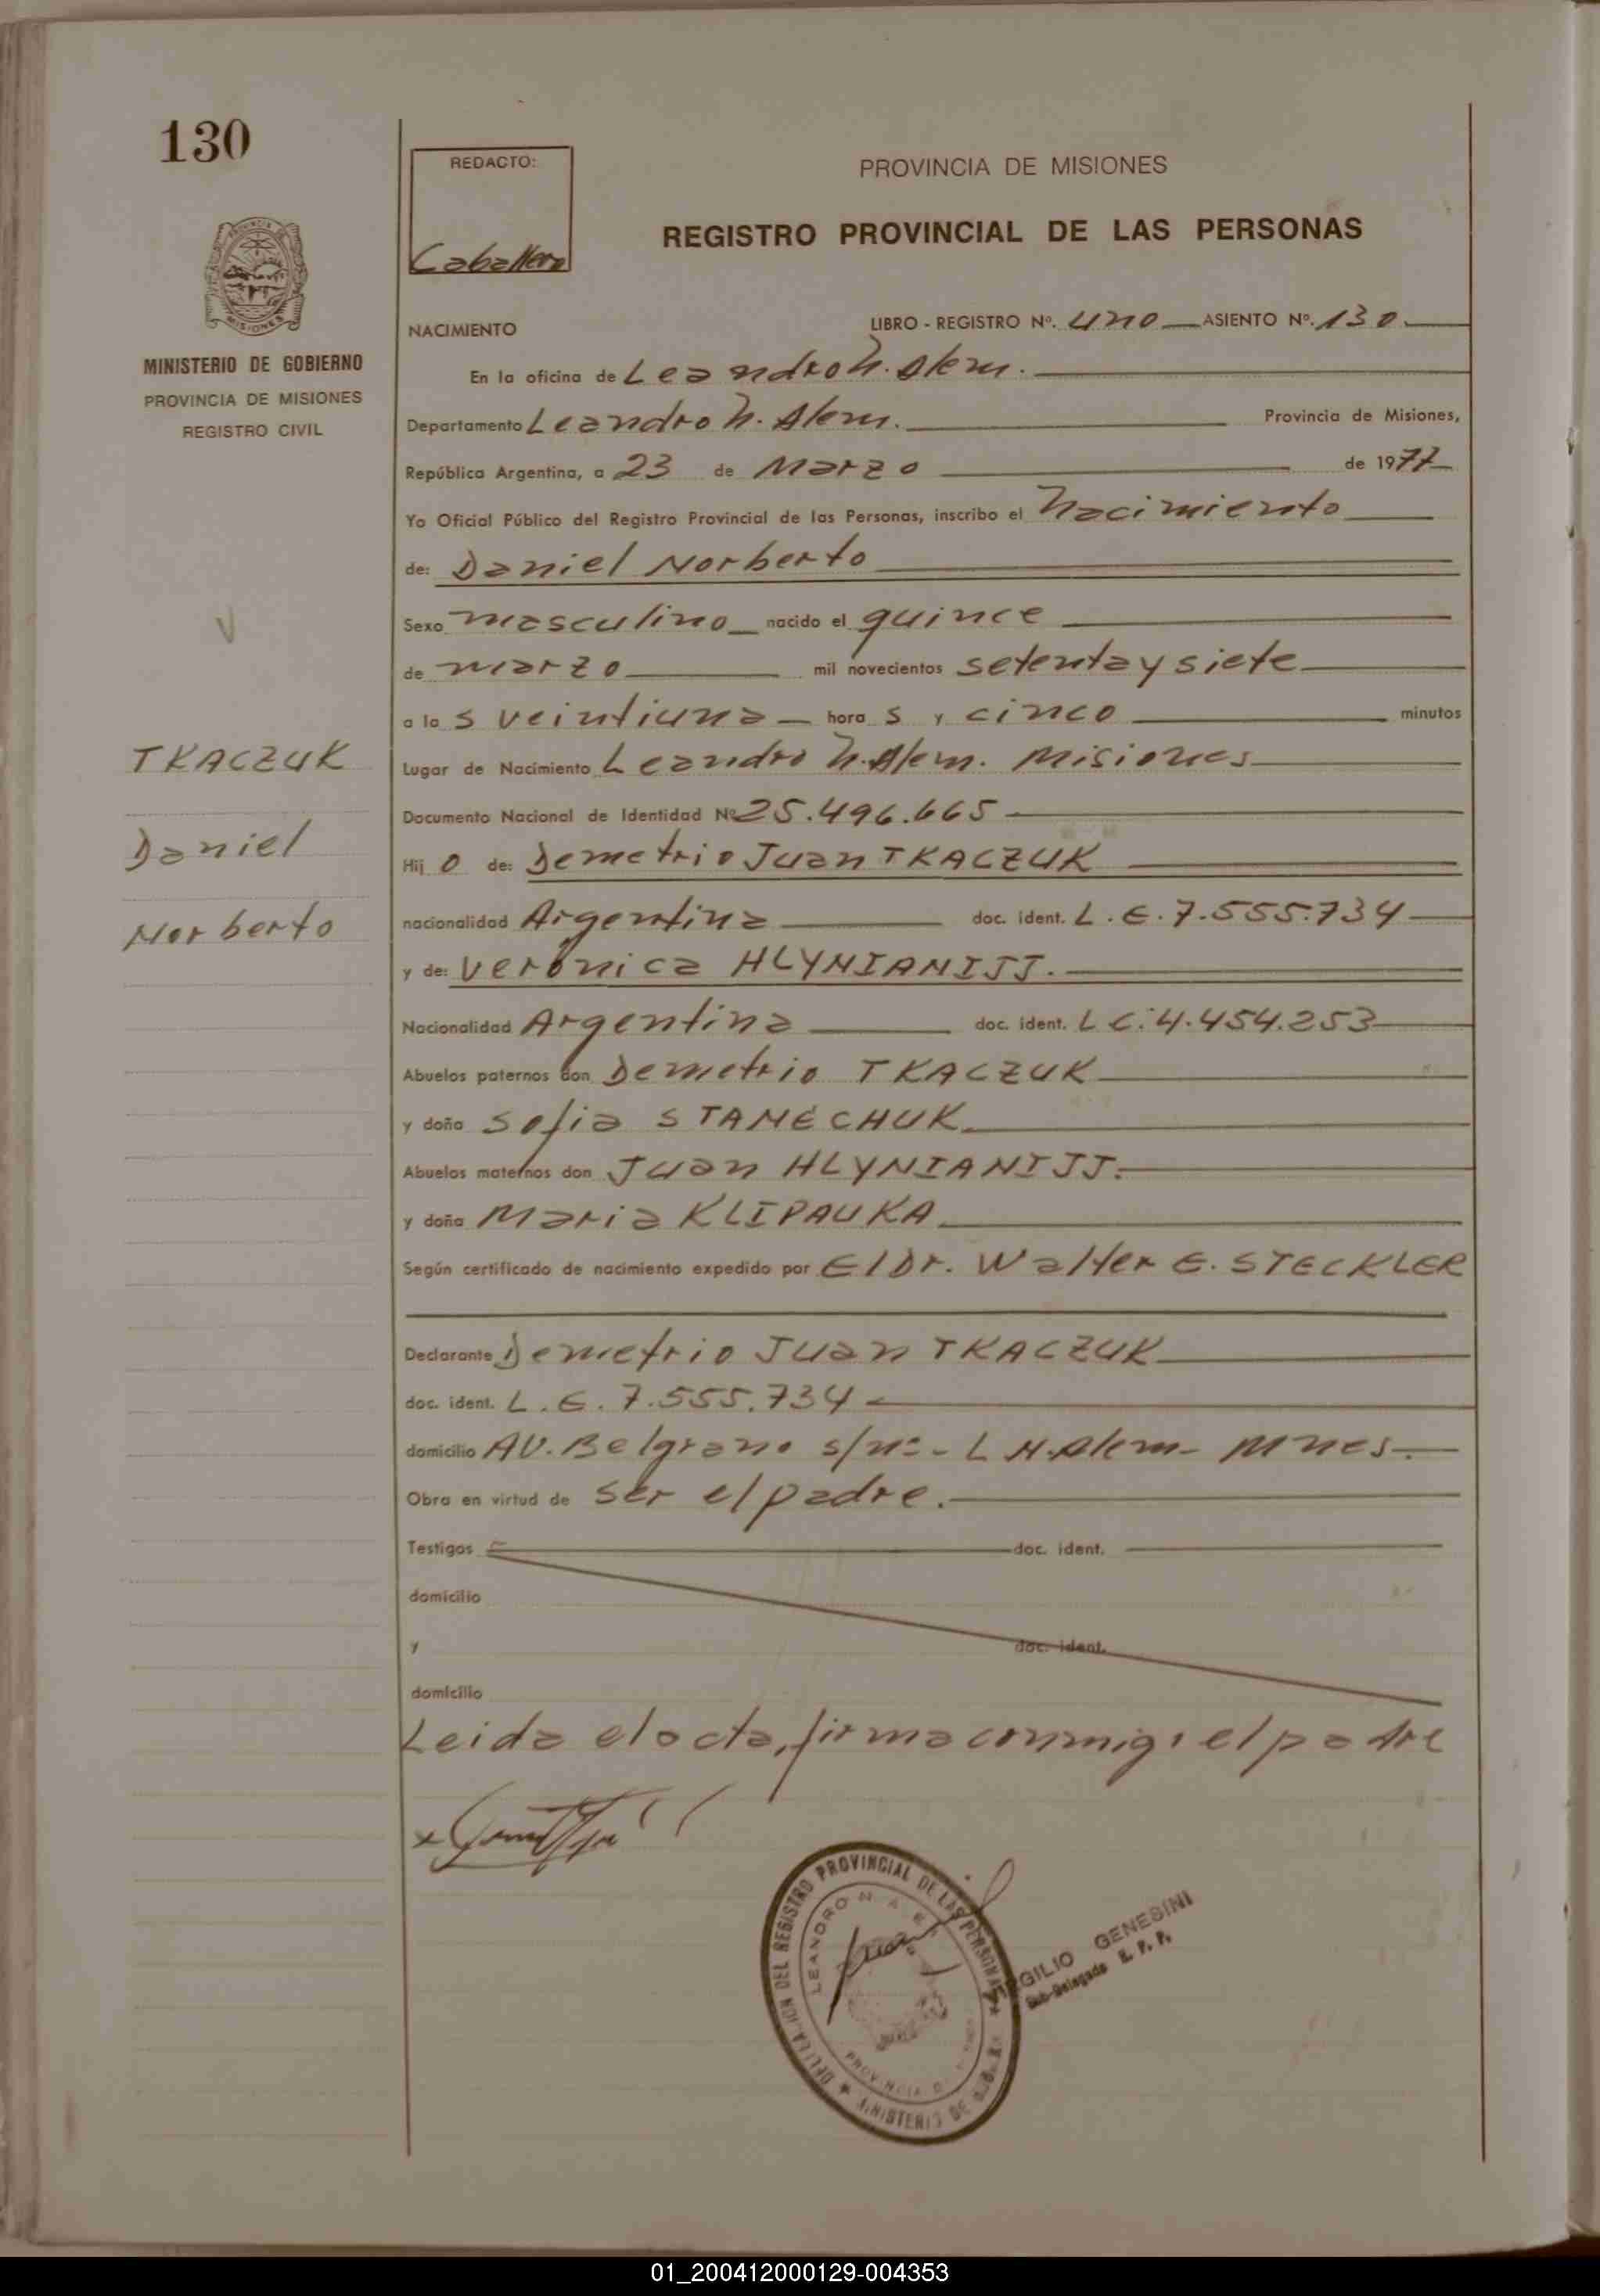 130
REDACTO:
Caballero
PROVINCIA DE MISIONES
REGISTRO PROVINCIAL DE LAS PERSONAS
MISIONES
MINISTERIO DE GOBIERNO
PROVINCIA DE MISIONES
REGISTRO CIVIL
NACIMIENTO
LIBRO - REGISTRO Nº. uno ASIENTO Nº. 130
En la oficina de Leandro N. Alem.
Departamento Leandro N. Alem. Provincia de Misiones,
República Argentina, a 23 de Marzo de 1977
Yo Oficial Público del Registro Provincial de las Personas, inscribo el Nacimiento
de: Daniel Norberto
Sexo masculino nacido el quince
de marzo mil novecientos setenta y siete
a la s veintiuna hora s y cinco minutos
TKACZUK
Daniel
Norberto
Lugar de Nacimiento Leandro N. Alem. Misiones
Documento Nacional de Identidad Nº 25.496.665
Hij o de: Demetrio Juan TKACZUK
nacionalidad Argentina doc. ident. L.E. 7.555.734
y de: Verónica HLYNIANIJJ.
Nacionalidad Argentina doc. ident. L C. 4.454.253
Abuelos paternos don Demetrio TKACZUK
y doña Sofia STAMECHUK
Abuelos maternos don Juan HLYNIANIJJ.
y doña Maria KLIPAUKA
Según certificado de nacimiento expedido por El Dr. Walter E. STECKLER
Declarante Demetrio Juan TKACZUK
doc. ident. L.E. 7.555.734
domicilio AV. Belgrano s/nº - L N. Alem - Mnes.
Obra en virtud de ser el padre.
Testigos doc. ident.
domicilio
y doc. ident.
domicilio
Leida el acta, firma conmigo el padre
DEL REGISTRO PROVINCIAL DE LAS PERSONAS
LEANDRO N. ALE
PROVINCIA D
MINISTERIO DE
GILIO GENESINI
Sub-Delegado R. P. P.
01_200412000129-004353